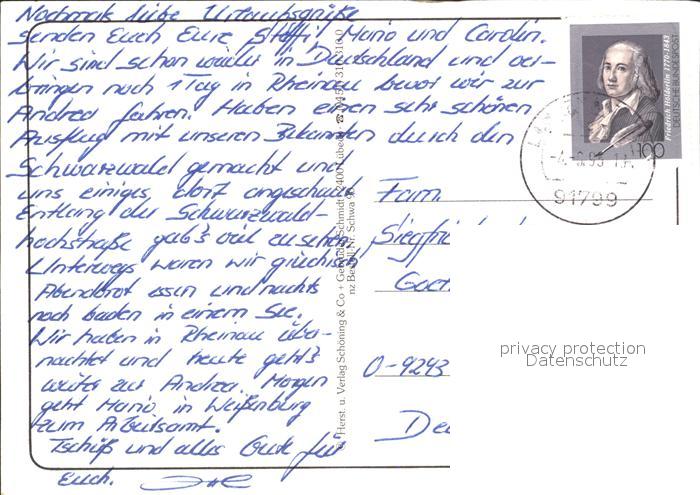 Nochmals liebe Urlaubsgrüße
senden Euch Eure Steffi, Mario und Carolin.
Wir sind schon wieder in Deutschland und ver-
bringen noch 1 Tag in Rheinau bevor wir zur
Andrea fahren. Haben einen sehr schönen
Ausflug mit unseren Bekannten durch den
Schwarzwald gemacht und
uns einiges dort angeschaut.
Entlang der Schwarzwald-
hochstraße gab's viel zu sehen.
Unterwegs waren wir griechisch
Abendbrot essen und nachts
noch baden in einem See.
Wir haben in Rheinau über-
nachtet und heute geht's
weiter zur Andrea. Morgen
geht Mario in Weißenburg
zum Arbeitsamt.
Tschüß und alles Gute für
Euch.
Herst. u. Verlag Schöning & Co + Gebrüder Schmidt
2400 Lübeck
Bestell-Nr. Schwa
Fam.
O-9293
Friedrich Hölderlin 1770-1843
DEUTSCHE BUNDESPOST
100
91799
privacy protection
Datenschutz